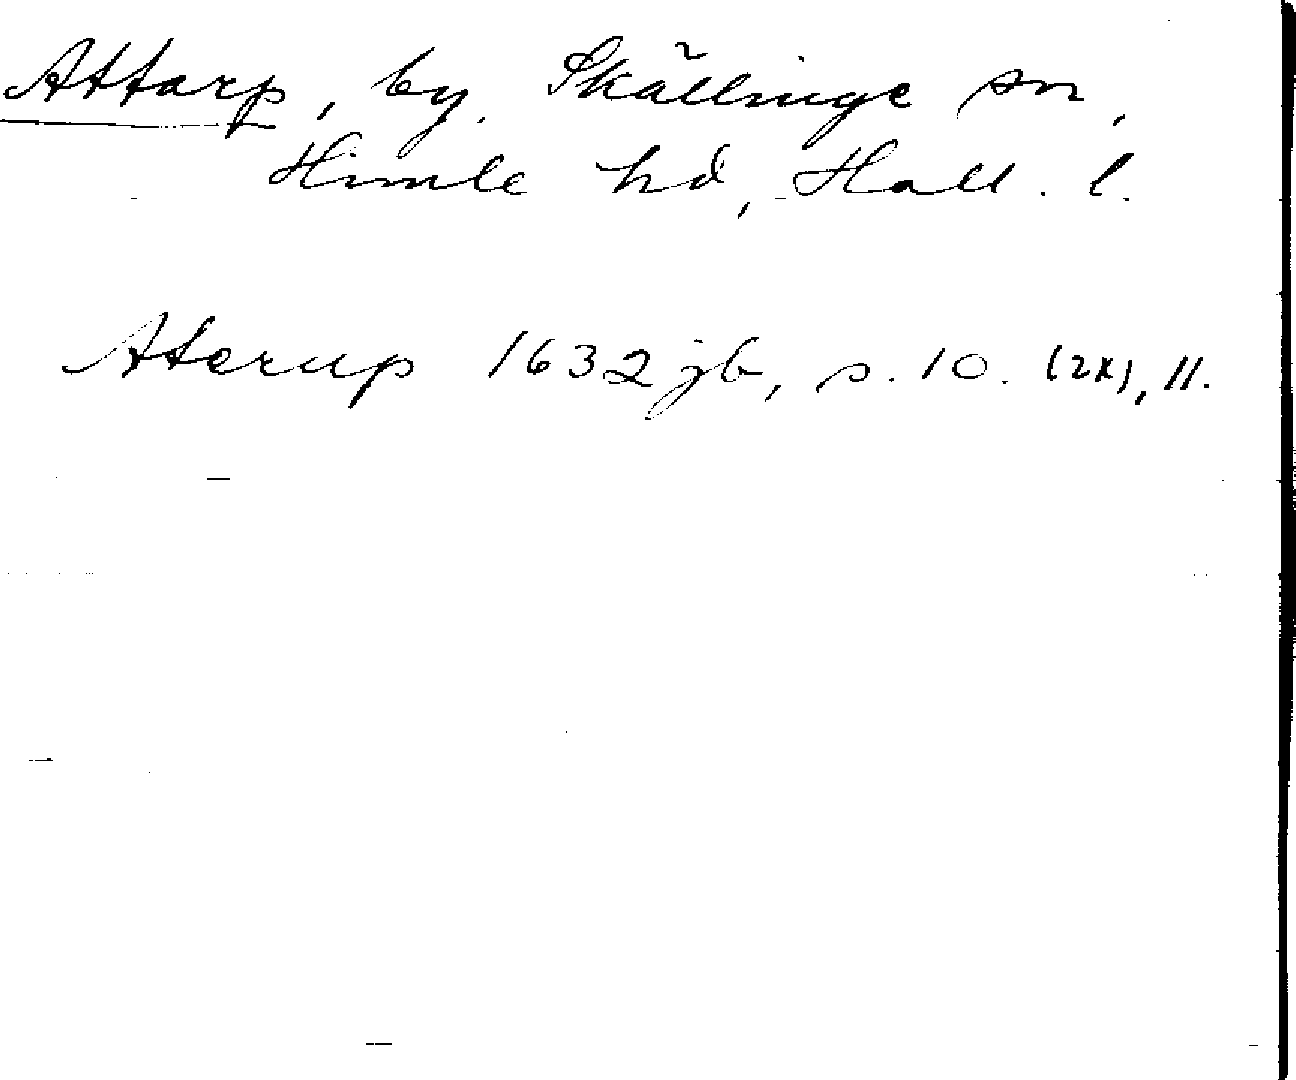 Attarp, by, Skällinge sn,
Himle hd, Hall. l.
Aterup 1632 jb, s. 10. (2x), 11.